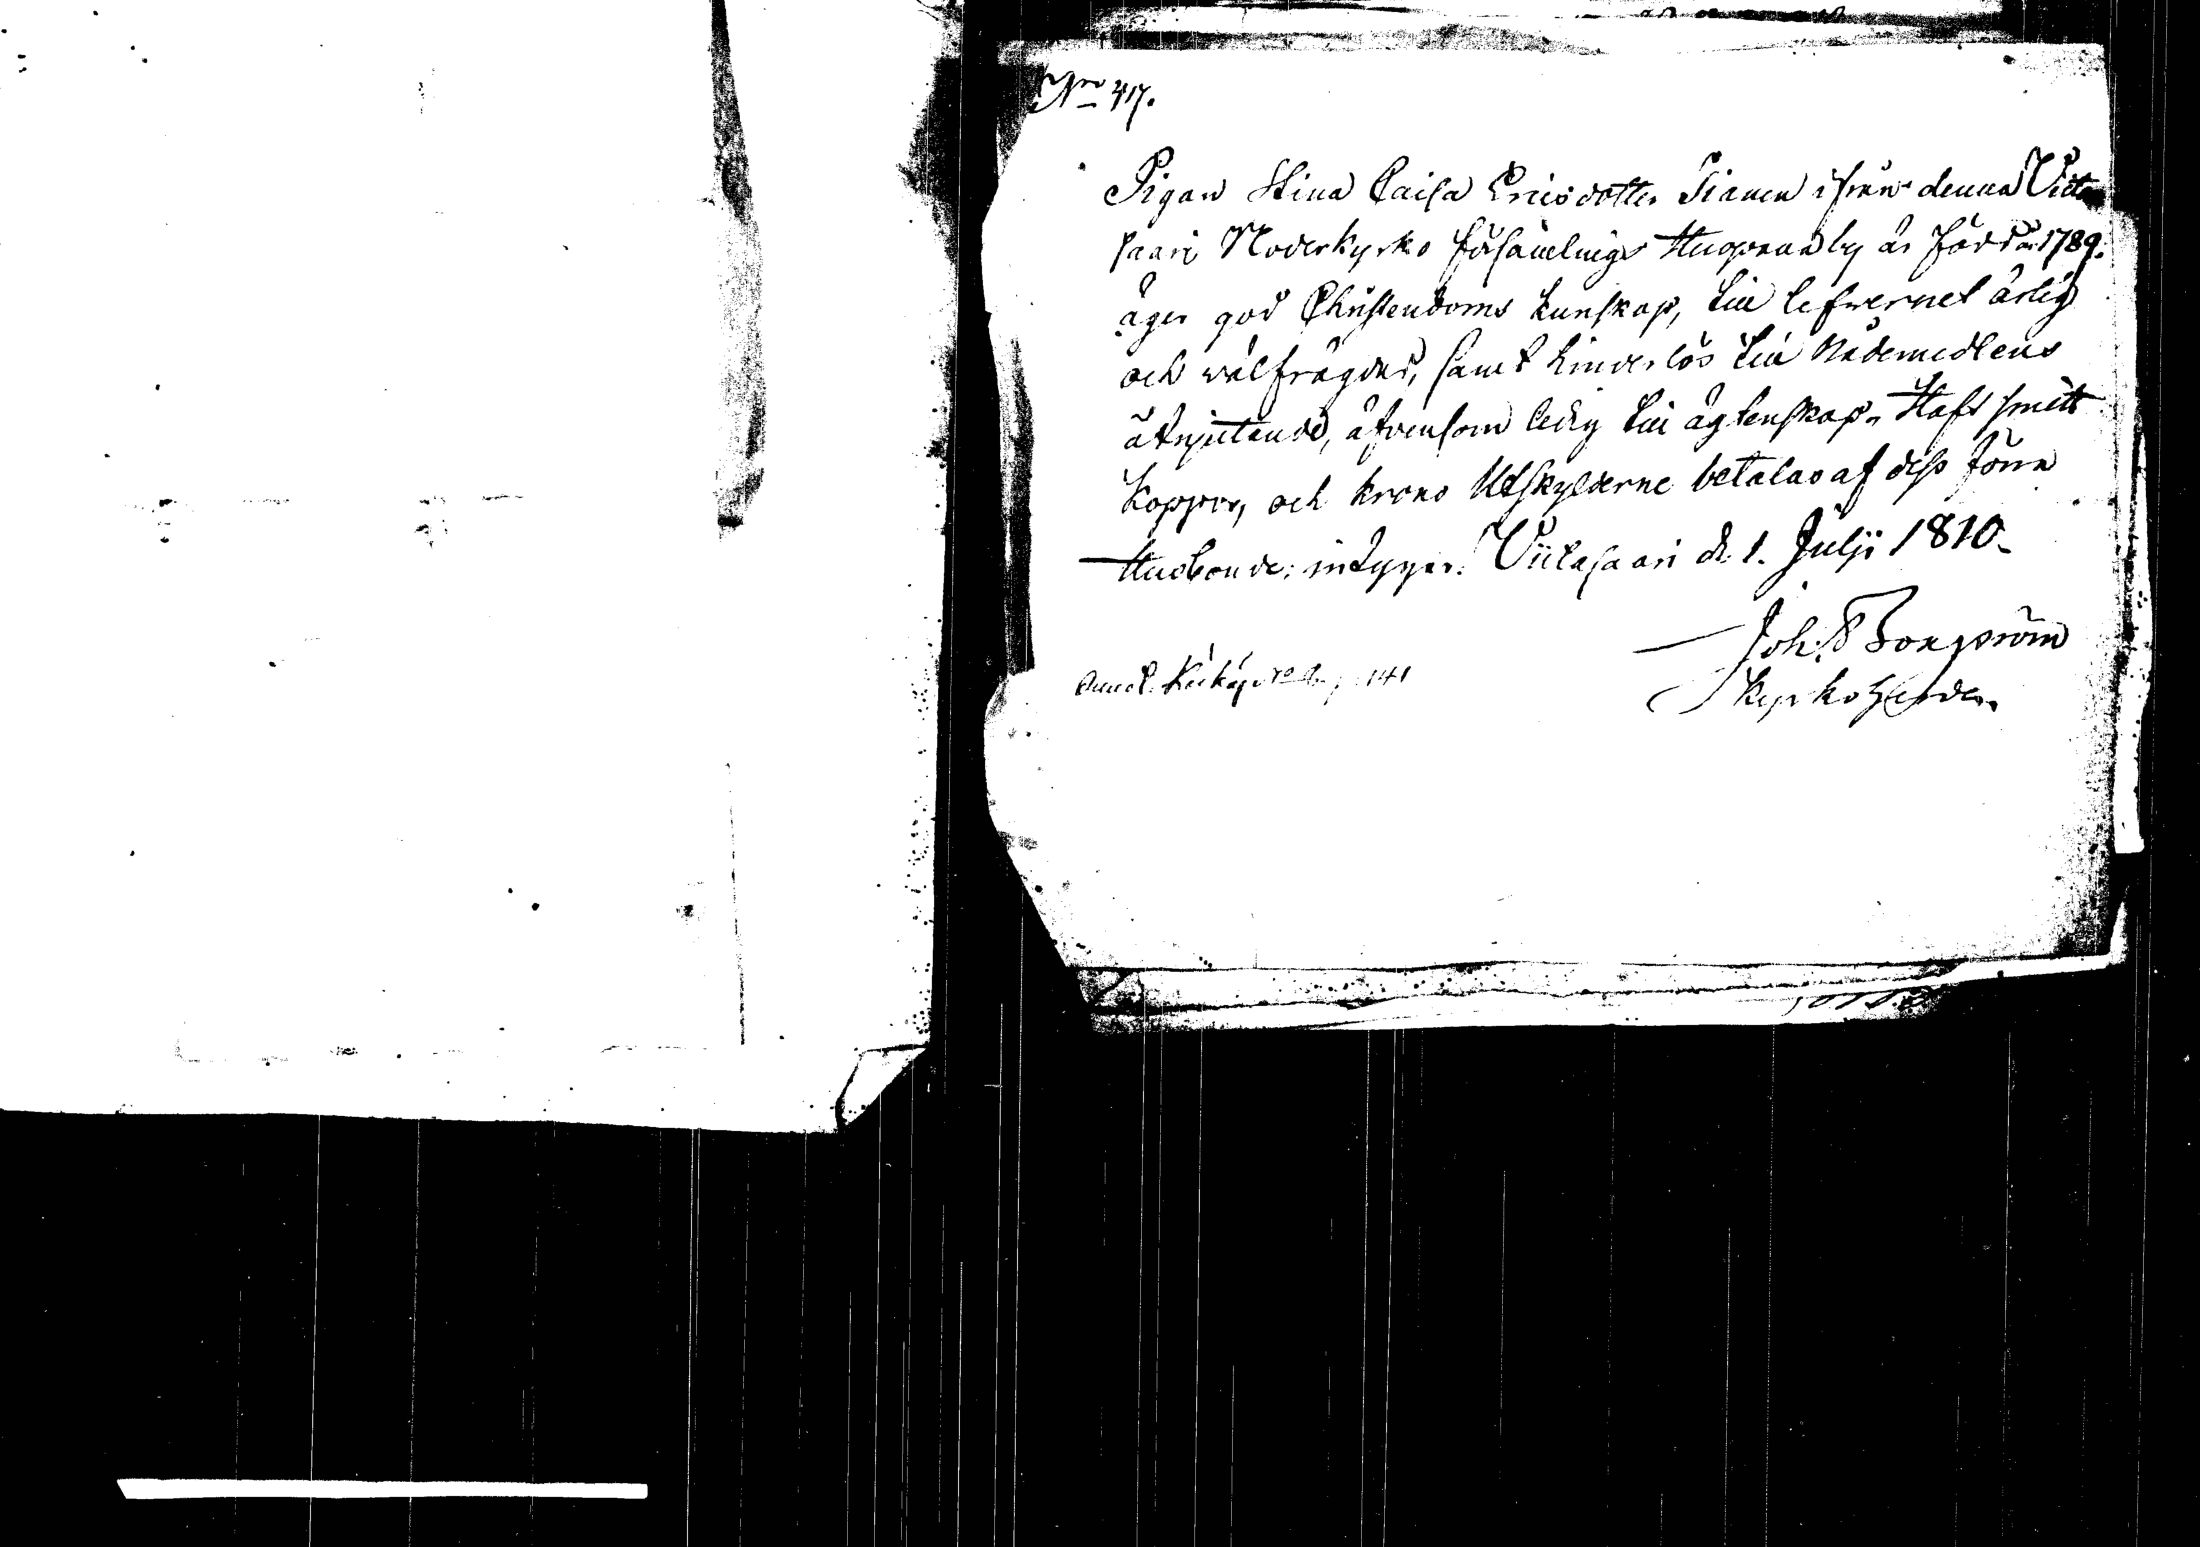 Nro 417.
Pigan Stina Caisa Ericsdotter Tianen ifrån denna Viita
saari Moderkyrko församlings Huopana by är född år 1789.
äger god Christendoms kunskap, till lefvernet ärlig
och välfrägdad, samt hinderlös till Nådemedlens
åtnjutande, äfvensom ledig till ägtenskap. Haft smitt
koppor, och krono Utskylderne betalas af dess förra
Husbonde; intygar. Viitasaari d. 1. Julji 1810.
Joh: Borgström
Kyrkoherde.
141